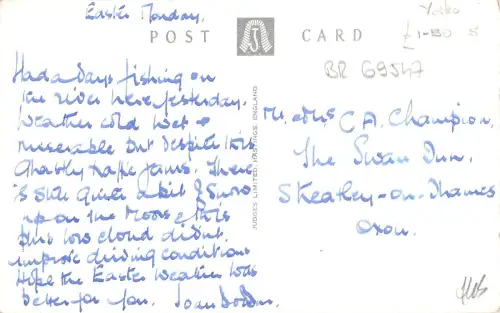 Easter Monday.
POST CARD
Yorks
£1-50 S
BR 69547
Had a days fishing on
the river here yesterday.
Weather cold wet +
miserable but despite this
Ghastly traffic jams. There
is still quite a bit of snow
up on the Moors & Hills
plus low cloud didnt
improve driving conditions
Hope the Easter weather was
better for you. Joan
JUDGES LIMITED, HASTINGS, ENGLAND
Mr. & Mrs C A. Champion,
The Swan Inn,
Streatley-on-Thames
Oxon.